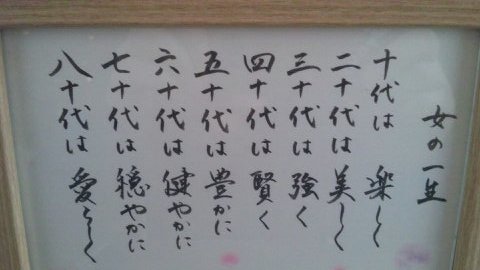 女の一生
十代は 楽しく
二十代は 美しく
三十代は 強く
四十代は 賢く
五十代は 豊かに
六十代は 健やかに
七十代は 穏やかに
八十代は 愛らしく